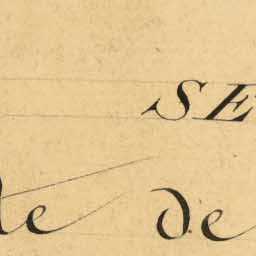 SE
de de